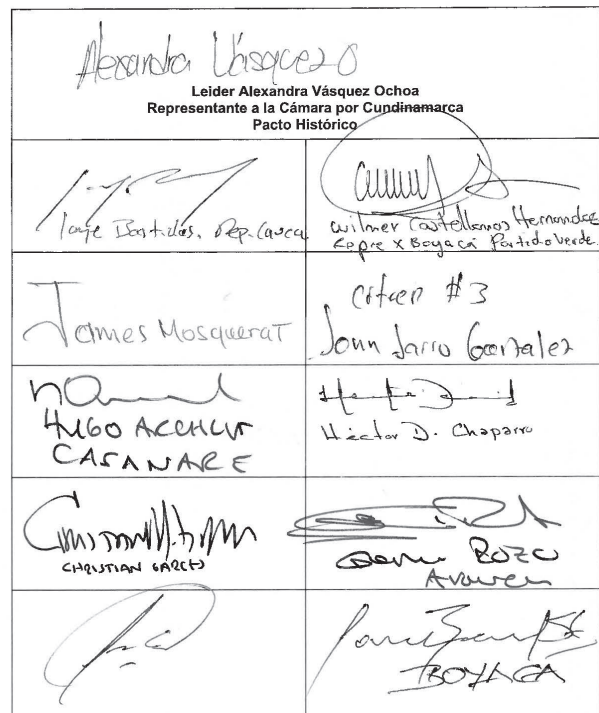 Alexandra Vásquez O
Leider Alexandra Vásquez Ochoa
Representante a la Cámara por Cundinamarca
Pacto Histórico
Jorge Bastidas. Rep. Cauca
Wilmer Castellanos Hernandez
Repre x Boyacá Partido Verde.
James Mosquera T
Citrep #3
John Jairo González
HUGO ARCHILA
CASANARE
Héctor D. Chaparro
CHRISTIAN GARCÉS
ROZO
Arauca
BOYACA